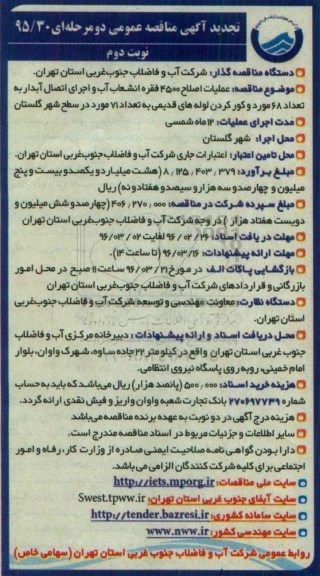 تجدید آگهی مناقصه عمومی دو مرحله‌ای ۹۵/۳۰
نوبت دوم
دستگاه مناقصه گذار: شرکت آب و فاضلاب جنوب‌غربی استان تهران.
موضوع مناقصه: عملیات اصلاح ۴۵۰۰ فقره انشعاب آب و اجرای اتصال آبدار به
تعداد ۶۸ مورد و کور کردن لوله های قدیمی به تعداد ۷۱ مورد در سطح شهر گلستان
مدت اجرای عملیات: ۱۲ ماه شمسی
محل اجرا: شهر گلستان
محل تامین اعتبار: اعتبارات جاری شرکت آب و فاضلاب جنوب‌غربی استان تهران.
مبلغ برآورد: ۸,۱۲۵,۴۰۳,۳۷۹ (هشت میلیارد و یکصد و بیست و پنج
میلیون و چهارصد و سه هزار و سیصد و هفتاد و نه) ریال
مبلغ سپرده شرکت در مناقصه: ۴۰۶,۲۷۰,۰۰۰ (چهارصد و شش میلیون و
دویست هفتاد هزار) در وجه شرکت آب و فاضلاب جنوب‌غربی استان تهران
مهلت دریافت اسناد: ۹۶/۰۲/۲۶ لغایت ۹۶/۰۳/۰۲
مهلت ارائه پیشنهادات: ۹۶/۰۳/۱۶ (تا ساعت ۱۴).
بازگشایی پاکات الف در مورخ ۹۶/۰۳/۲۱ ساعت ۱۱ صبح در محل امور
بازرگانی و قراردادهای شرکت آب و فاضلاب جنوب‌غربی استان تهران
دستگاه نظارت: معاونت مهندسی و توسعه شرکت آب و فاضلاب جنوب‌غربی
استان تهران.
محل دریافت اسناد و ارائه پیشنهادات: دبیرخانه مرکزی آب و فاضلاب
جنوب غربی استان تهران واقع در کیلومتر ۲۲ جاده ساوه، شهرک واوان، بلوار
امام خمینی، روبه روی پاسگاه نیروی انتظامی.
هزینه خرید اسناد: ۵۰۰,۰۰۰ (پانصد هزار) ریال می‌باشد که باید به حساب
شماره ۲۷۰۶۹۷۷۳۹ بانک تجارت شعبه واوان واریز و فیش نقدی ارائه گردد.
هزینه درج آگهی در دو نوبت به عهده برنده مناقصه می‌باشد
سایر اطلاعات و جزئیات مربوط در اسناد مناقصه مندرج است.
دارا بودن گواهی نامه صلاحیت ایمنی صادره از وزارت کار، رفاه و امور
اجتماعی برای کلیه شرکت کنندگان الزامی می باشد.
سایت ملی مناقصات: http://iets.mporg.ir
سایت آبفای جنوب غربی استان تهران: Swest.tpww.ir
سایت سامانه کشوری: http://tender.bazresi.ir
سایت مهندسی کشور: www.nww.ir
روابط عمومی شرکت آب و فاضلاب جنوب غربی استان تهران (سهامی خاص)